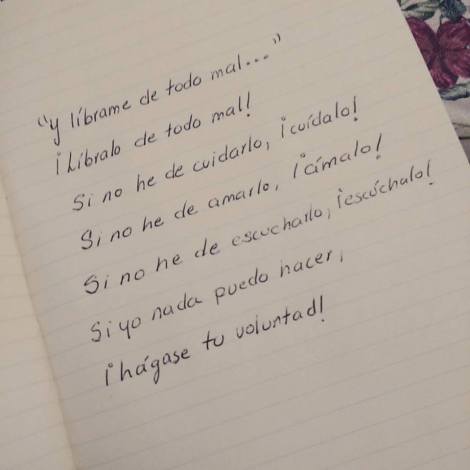 "y líbrame de todo mal..."
¡Líbralo de todo mal!
Si no he de cuidarlo, ¡cuídalo!
Si no he de amarlo, ¡ámalo!
Si no he de escucharlo, ¡escúchalo!
Si yo nada puedo hacer,
¡hágase tu voluntad!